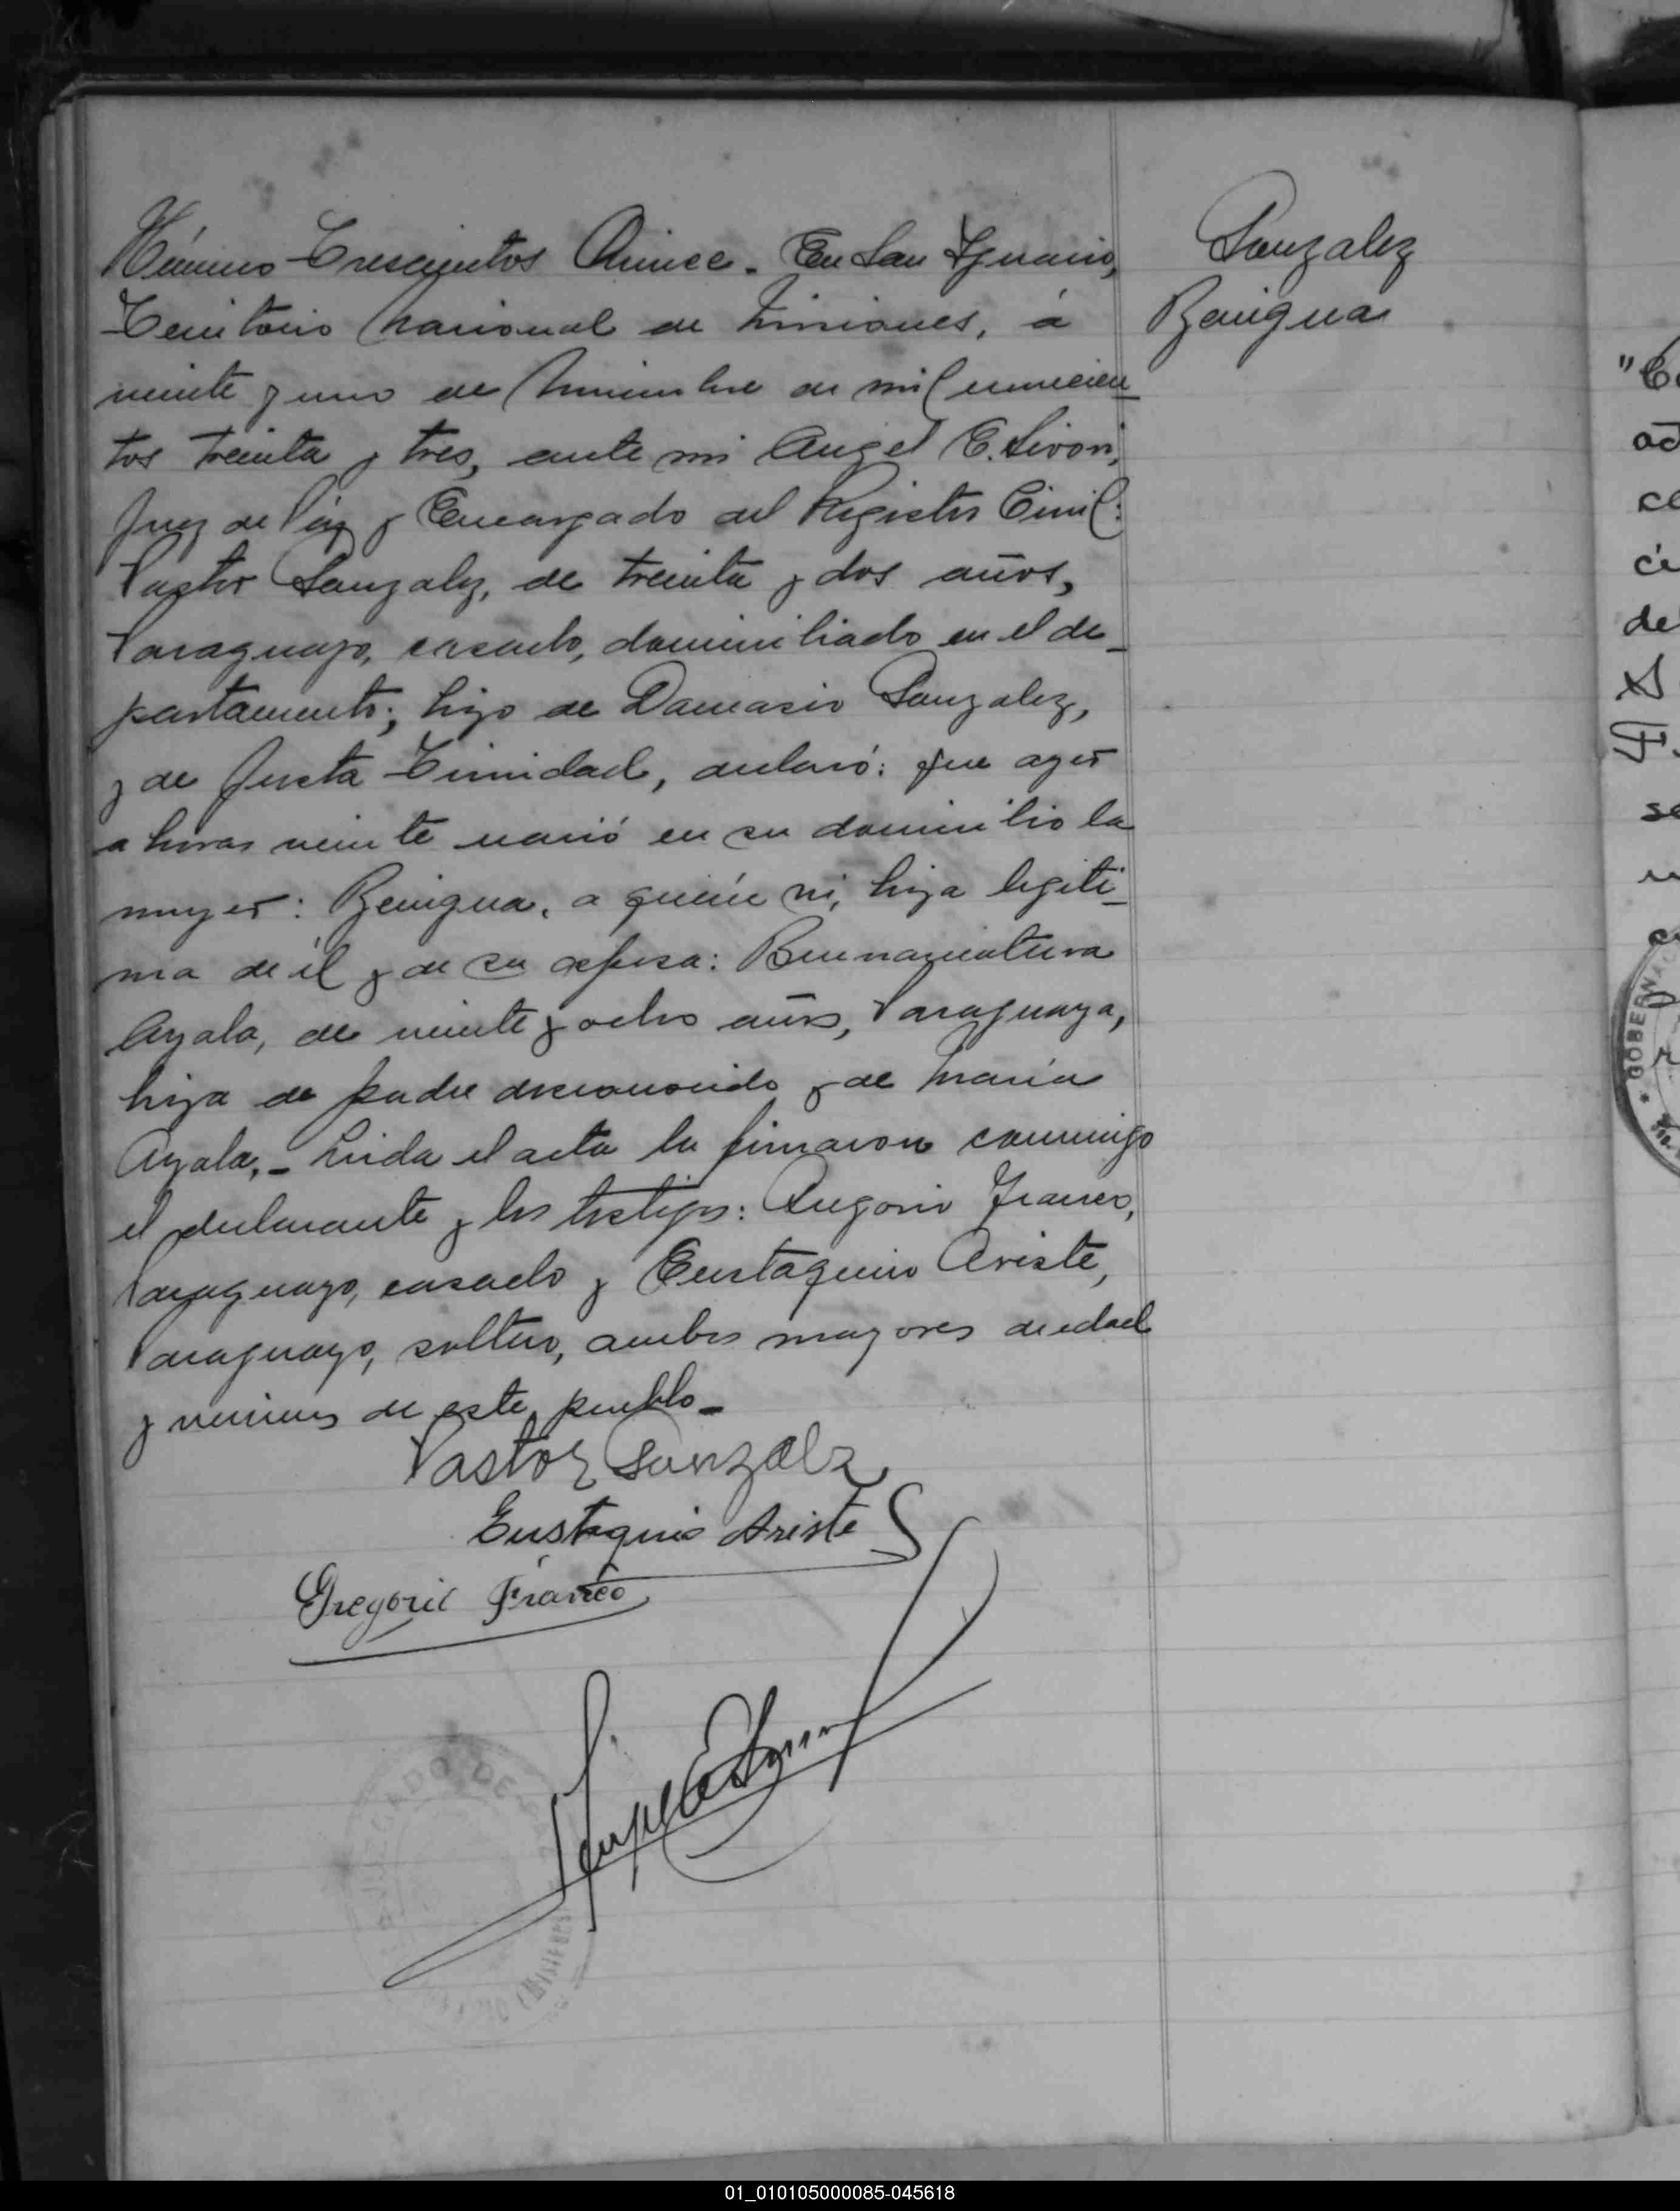 Número Trescientos Quince. En San Ignacio,
Territorio Nacional de Misiones, á
veinte y uno de Noviembre de mil novecien-
tos treinta y tres, ante mi Angel E.
Juez de Paz y Encargado del Registro Civil:
Pastor Gonzalez, de treinta y dos años,
Paraguayo, casado, domiciliado en el de-
partamento; hijo de Damasio Gonzalez,
y de Justa Trinidad, declaró: que ayer
a horas veinte nació en su domicilio la
mujer: Benigna, a quien vi, hija legiti-
ma de él y de su esposa: Buenaventura
Ayala, de veinte y ocho años, Paraguaya,
hija de padre desconocido y de María
Ayala,- Leida el acta la firmaron conmigo
el declarante y los testigos: Gregorio Franco,
Paraguayo, casado y Eustaquio Ariste,
Paraguayo, soltero, ambos mayores de edad
y vecinos de este pueblo-
Pastor Gonzalz
Eustaquio Ariste
Gregorio Franco
Gonzalez
Benigna
JUZGADO DE
(MISIONES)
"C
ac
ce
ci
de
F.
se
GOBERNAC
01_010105000085-045618